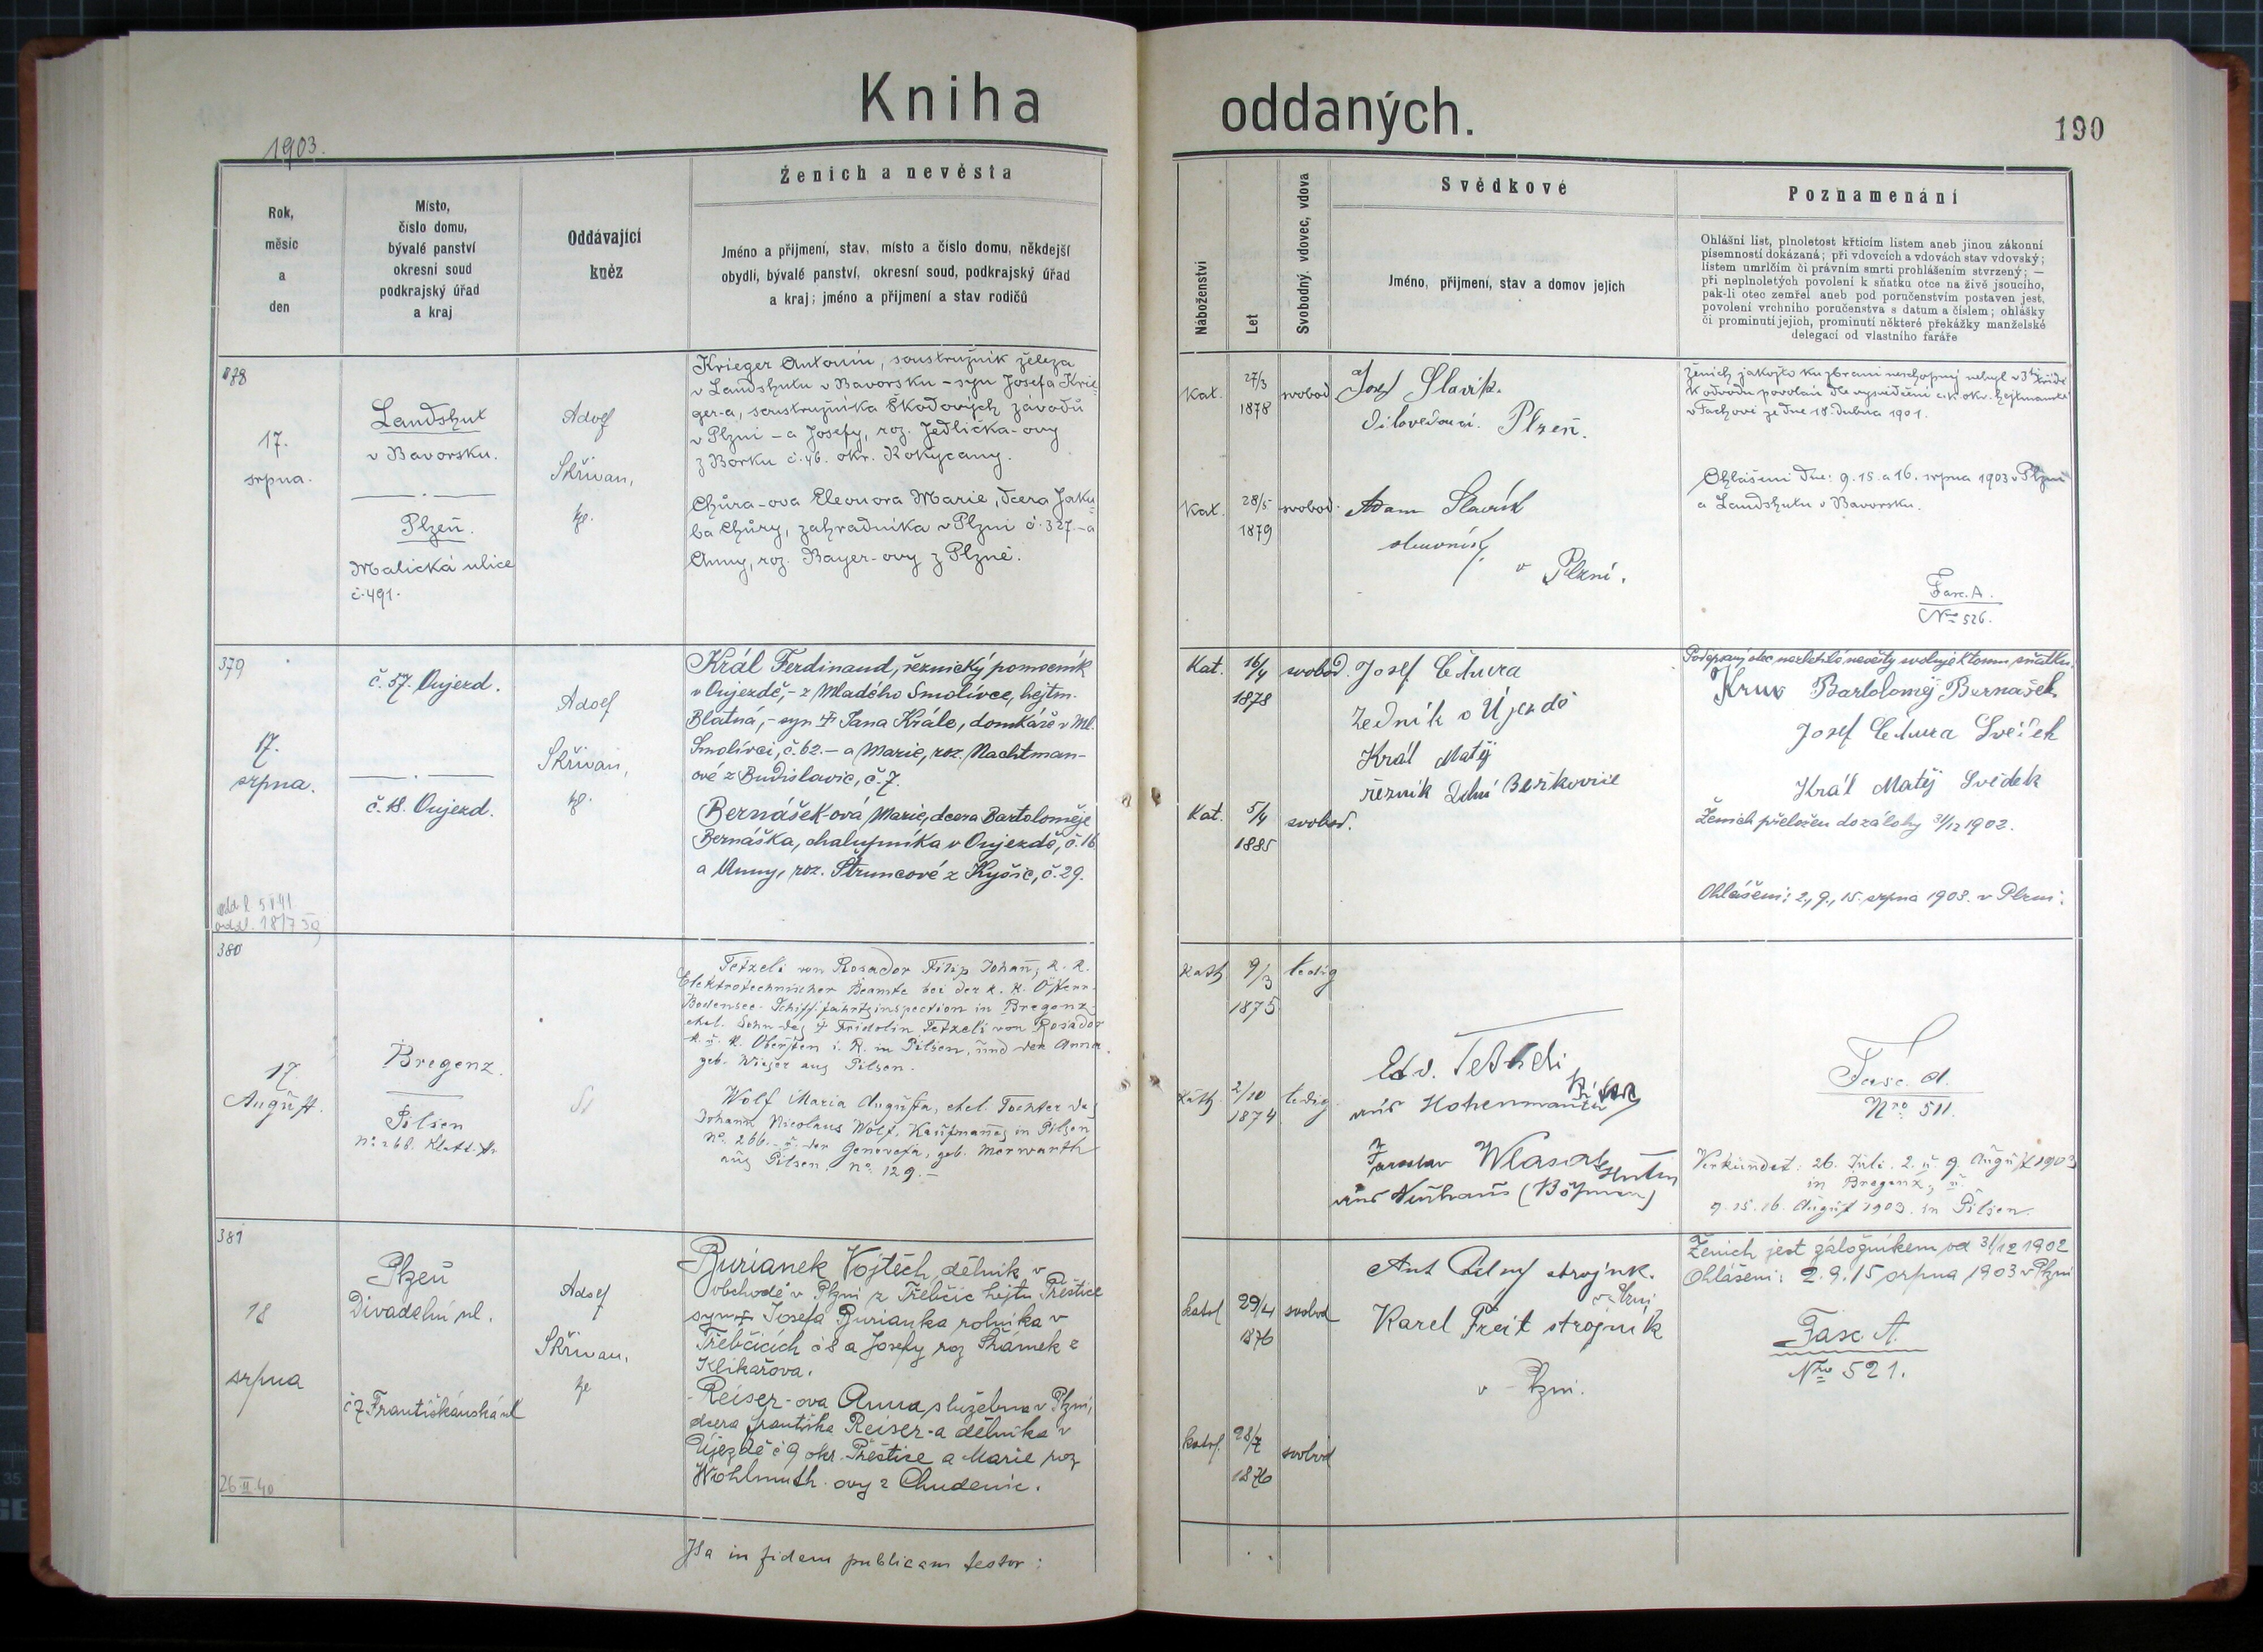 Kniha oddaných.
190
1903.
Rok,
měsíc
a
den
Místo,
číslo domu,
bývalé panství
okresní soud
podkrajský úřad
a kraj
Oddávající
kněz
Ženich a nevěsta
Jméno a přijmení, stav, místo a číslo domu, někdejší
obydlí, bývalé panství, okresní soud, podkrajský úřad
a kraj; jméno a přijmení a stav rodičů
Náboženství
Let
Svobodný, vdovec, vdova
Svědkové
Jméno, přijmení, stav a domov jejich
Poznamenání
Ohlášní list, plnoletost křticím listem aneb jinou zákonní
písemností dokázaná; při vdovcích a vdovách stav vdovský;
listem umrlčím či právním smrti prohlášením stvrzený; —
při neplnoletých povolení k sňatku otce na živě jsoucího,
pak-li otec zemřel aneb pod poručenstvím postaven jest,
povolení vrchního poručenstva s datum a číslem; ohlášky
či prominutí jejich, prominutí některé překážky manželské
delegací od vlastního faráře
378
17.
srpna.
Landshut
v Bavorsku.
Plzeň.
Malická ulice
č. 491.
Adolf
Skřivan,
Krieger Antonín, soustružník železa
v Landshutu v Bavorsku – syn Josefa Krie-
ger-a, soustružníka Škodových závodů
v Plzni – a Josefy, roz. Jedlička-ovy
z Borku č. 46. okr. Rokycany.
Chůra-ova Eleonora Marie, dcera Jaku-
ba Chůry, zahradníka v Plzni č. 327. – a
Anny, roz. Bayer-ovy z Plzně.
Kat.
27/3
1878
svobod
Kat.
28/5
1879
svobod.
Josef Slavík.
dílovedoucí. Plzeň.
Adam Slavík
v Plzni.
ženich jakožto ku zbrani neschopný nebyl v 3tí třídě
k odvodu povolán dle vysvědčení c. k. okr. hejtmanství
v Tachově ze dne 18. dubna 1901.
Ohlášeni dne: 9. 15. a 16. srpna 1903 v Plzni
a Landshutu v Bavorsku.
Fasc. A.
Nro 526.
379
17.
srpna.
č. 57. Oujezd.
č. 18. Oujezd.
Adolf
Skřivan,
Král Ferdinand, řeznický pomocník
v Oujezdě, – z Mladého Smolivce, hejtm.
Blatná, – syn † Jana Krále, domkáře v Ml.
Smolivci, č. 62. – a Marie, roz. Nachtman-
ové z Budislavic, č. 7.
Bernášek-ová Marie, dcera Bartoloměje
Bernáška, chalupníka v Oujezdě, č. 16
a Anny, roz. Štruncové z Kyšic, č. 29.
Kat.
16/4
1878
svobod.
Kat.
5/4
1885
svobod.
Josef Cetura
Zedník v Újezdě
Král Matěj
řezník Dolní Beřkovice
Podepsaný otec nezletilé nevěsty svoluje k tomu sňatku.
Bartoloměj Bernašek.
Josef Cetura Svědek
Král Matěj Svědek
Ženich přeložen do zálohy 31/12 1902.
Ohlášeni: 2., 9., 15. srpna 1903. v Plzni.
380
17.
August.
Bregenz.
Pilsen
No. 268. Klatt. Str.
Tetzeli von Rosador Filip Johann, k. k.
Elektrotechnischer Beamte bei der k. k. Österr.
Bodensee-Schiffahrtsinspection in Bregenz,
ehel. Sohn des † Fridolin Tetzeli von Rosador
k. u. k. Obersten i. R. in Pilsen, und der Anna
geb. Wieser aus Pilsen.
Wolf Maria Augusta, ehel. Tochter des
Johann Nicolaus Wolf, Kaufmannes in Pilsen
No. 266. – u. der Genovefa, geb. Merwarth
aus Pilsen. No. 129. –
Kath
9/3
1875
ledig
Kath.
2/10
1874
ledig
aus Hohenmauth
Jaroslav
aus Neuhaus (Böhmen)
Fasc. A.
Nro 511.
Verkündet: 26. Juli. 2. u. 9. August 1903
in Bregenz, u.
9. 15. 16. August 1903. in Pilsen.
381
18
srpna
26. II. 40
Plzeň
Divadelní ul.
č 7 Františkánská ul
Adolf
Skřivan,
Burianek Vojtěch, dělník v
obchodě v Plzni z Třebčic hejtm Přeštice
syn † Josefa Burianka rolníka v
Třebčicích č 8 a Josefy roz Šrámek z
Klikařova.
Reiser-ova Anna služebna v Plzni,
dcera Františka Reiser-a dělníka v
Újezdě č 9 okr. Přeštice a Marie roz
Wohlmuth-ovy z Chudenic.
katol
29/4
1876
svobod
katol.
28/7
1876
svobod
strojník.
v Plzni
Karel Freit strojník
v Plzni.
Ženich jest záložníkem od 31/12 1902
Ohlášeni: 2. 9. 15 srpna 1903 v Plzni
Fasc. A.
Nro 521.
Ita in fidem publicam testor: